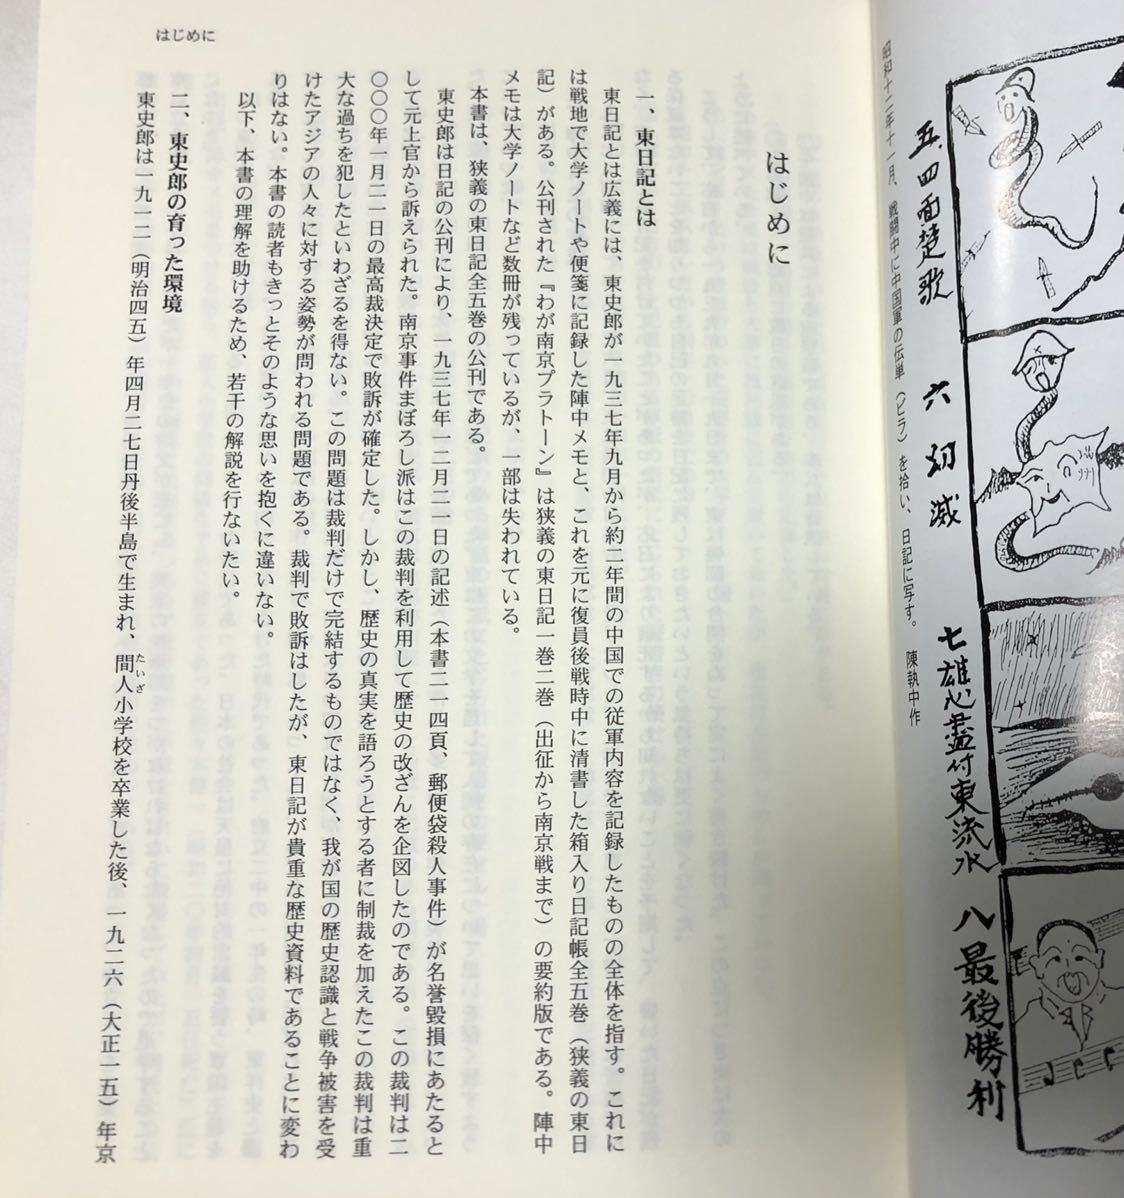 昭和十二年十一月、戦闘中に中国軍の伝単（ビラ）を拾い、日記に写す。　陳執中作
五、四面楚歌
六
滅
七雄心盡付東流水
八最後勝利
はじめに
はじめに
一、東日記とは
東日記とは広義には、東史郎が一九三七年九月から約二年間の中国での従軍内容を記録したものの全体を指す。これに
は戦地で大学ノートや便箋に記録した陣中メモと、これを元に復員後戦時中に清書した箱入り日記帳全五巻（狭義の東日
記）がある。公刊された『わが南京プラトーン』は狭義の東日記一巻二巻（出征から南京戦まで）の要約版である。陣中
メモは大学ノートなど数冊が残っているが、一部は失われている。
本書は、狭義の東日記全五巻の公刊である。
東史郎は日記の公刊により、一九三七年一二月二一日の記述（本書二一四頁、郵便袋殺人事件）が名誉毀損にあたると
して元上官から訴えられた。南京事件まぼろし派はこの裁判を利用して歴史の改ざんを企図したのである。この裁判は二
〇〇〇年一月二一日の最高裁決定で敗訴が確定した。しかし、歴史の真実を語ろうとする者に制裁を加えたこの裁判は重
大な過ちを犯したといわざるを得ない。この問題は裁判だけで完結するものではなく、我が国の歴史認識と戦争被害を受
けたアジアの人々に対する姿勢が問われる問題である。裁判で敗訴はしたが、東日記が貴重な歴史資料であることに変わ
りはない。本書の読者もきっとそのような思いを抱くに違いない。
以下、本書の理解を助けるため、若干の解説を行ないたい。
二、東史郎の育った環境
たいざ
東史郎は一九一二（明治四五）年四月二七日丹後半島で生まれ、間人小学校を卒業した後、一九二六（大正一五）年京